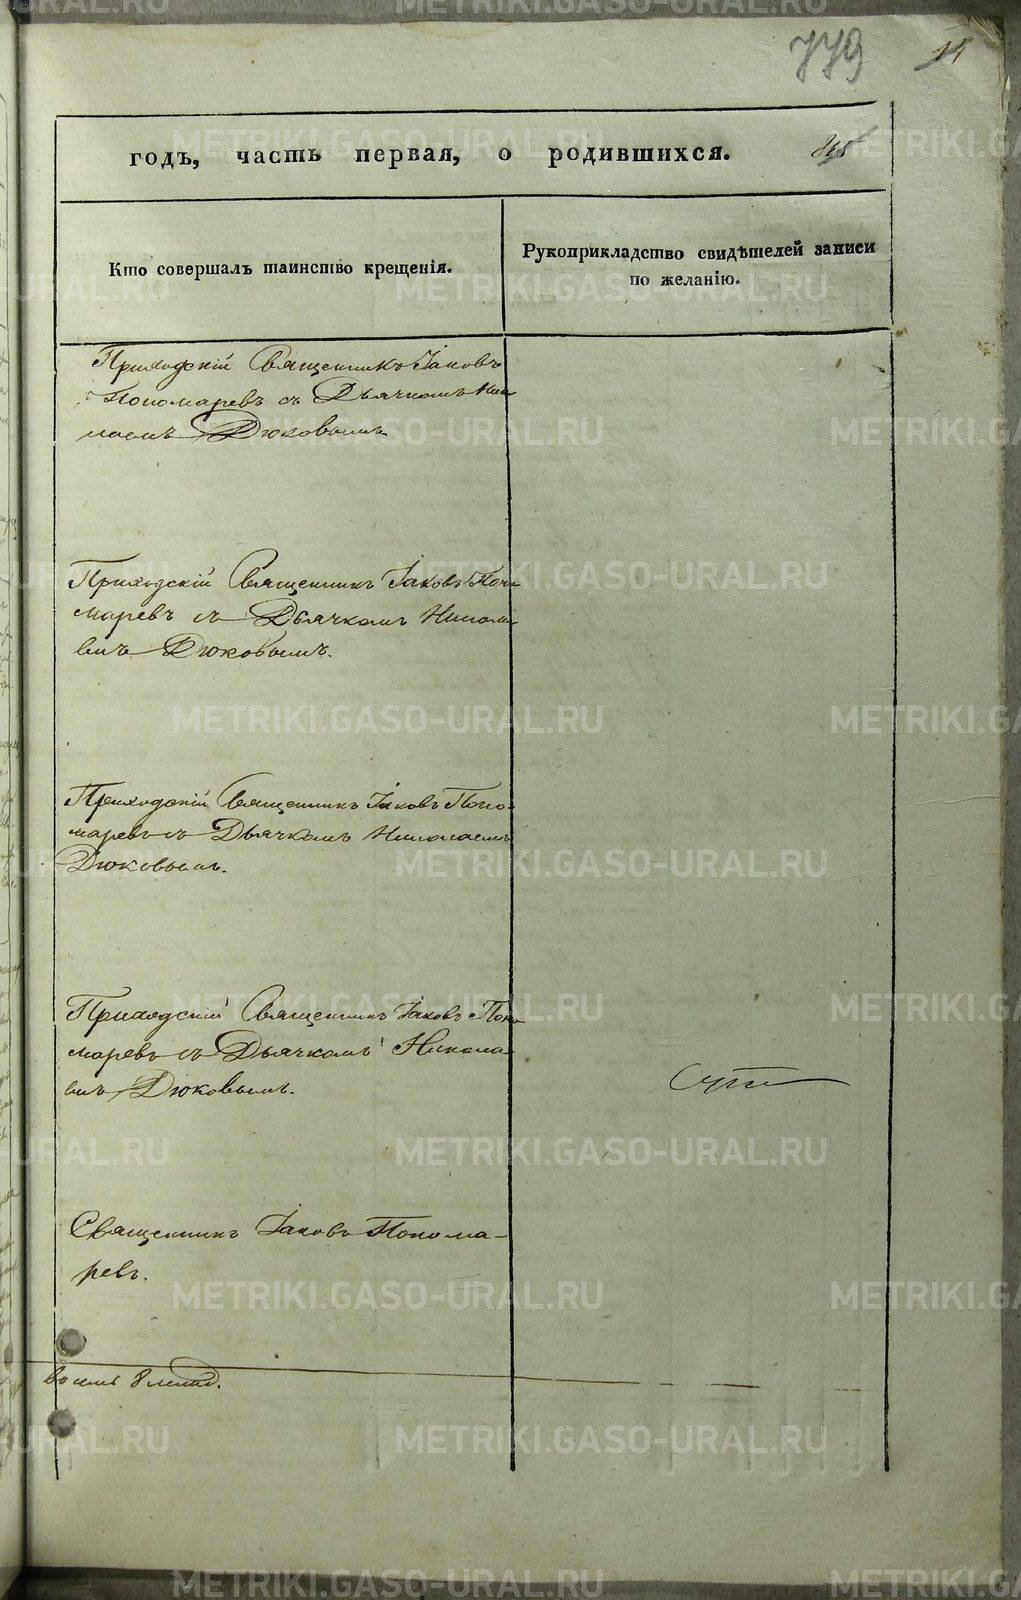 779 14
годъ, часть первая, о родившихся. 815
Кто совершалъ таинство крещенія.
Рукоприкладство свидѣтелей записи
по желанію.
Приходскій Священникъ Іаковъ
Пономаревъ съ Дьячкомъ Нико
лаемъ Дюковымъ
Приходскій Священникъ Іаковъ Поно
маревъ съ Дьячкомъ Никола
емъ Дюковымъ.
Приходскій Священникъ Іаковъ Поно-
маревъ съ Дьячкомъ Николаемъ
Дюковымъ.
Приходскій Священникъ Іаковъ Поно
маревъ съ Дьячкомъ Никола
емъ Дюковымъ.
Священникъ Іаковъ Понома-
ревъ.
METRIKI.GASO-URAL.RU